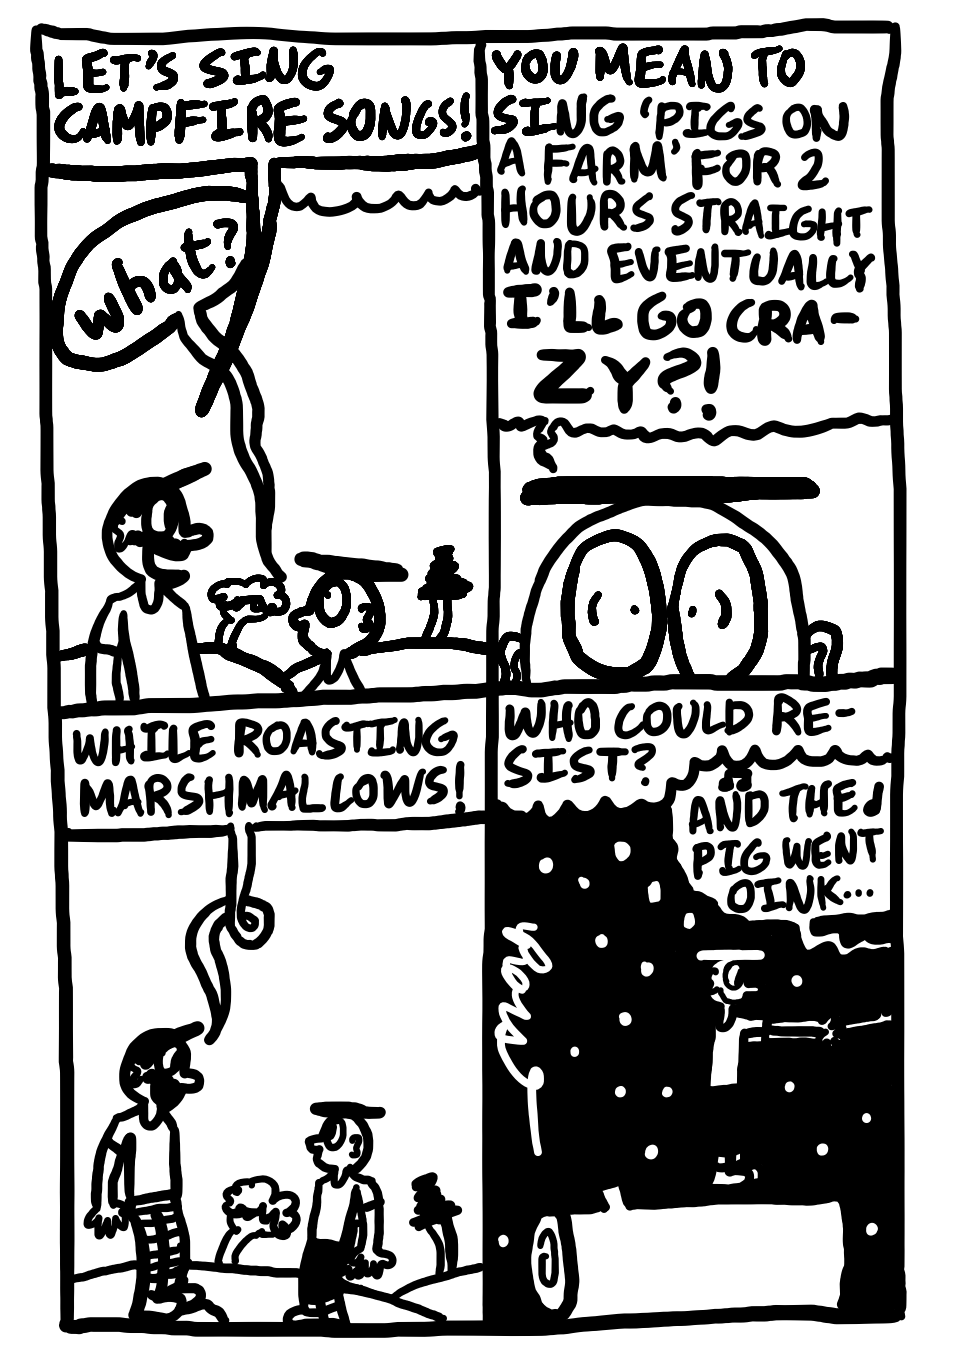 LET'S SING
CAMPFIRE SONGS!
what?
YOU MEAN TO
SING 'PIGS ON
A FARM' FOR 2
HOURS STRAIGHT
AND EVENTUALLY
I'LL GO CRA-
ZY?!
WHILE ROASTING
MARSHMALLOWS!
WHO COULD RE-
SIST?
♫ AND THE ♪
PIG WENT
OINK...